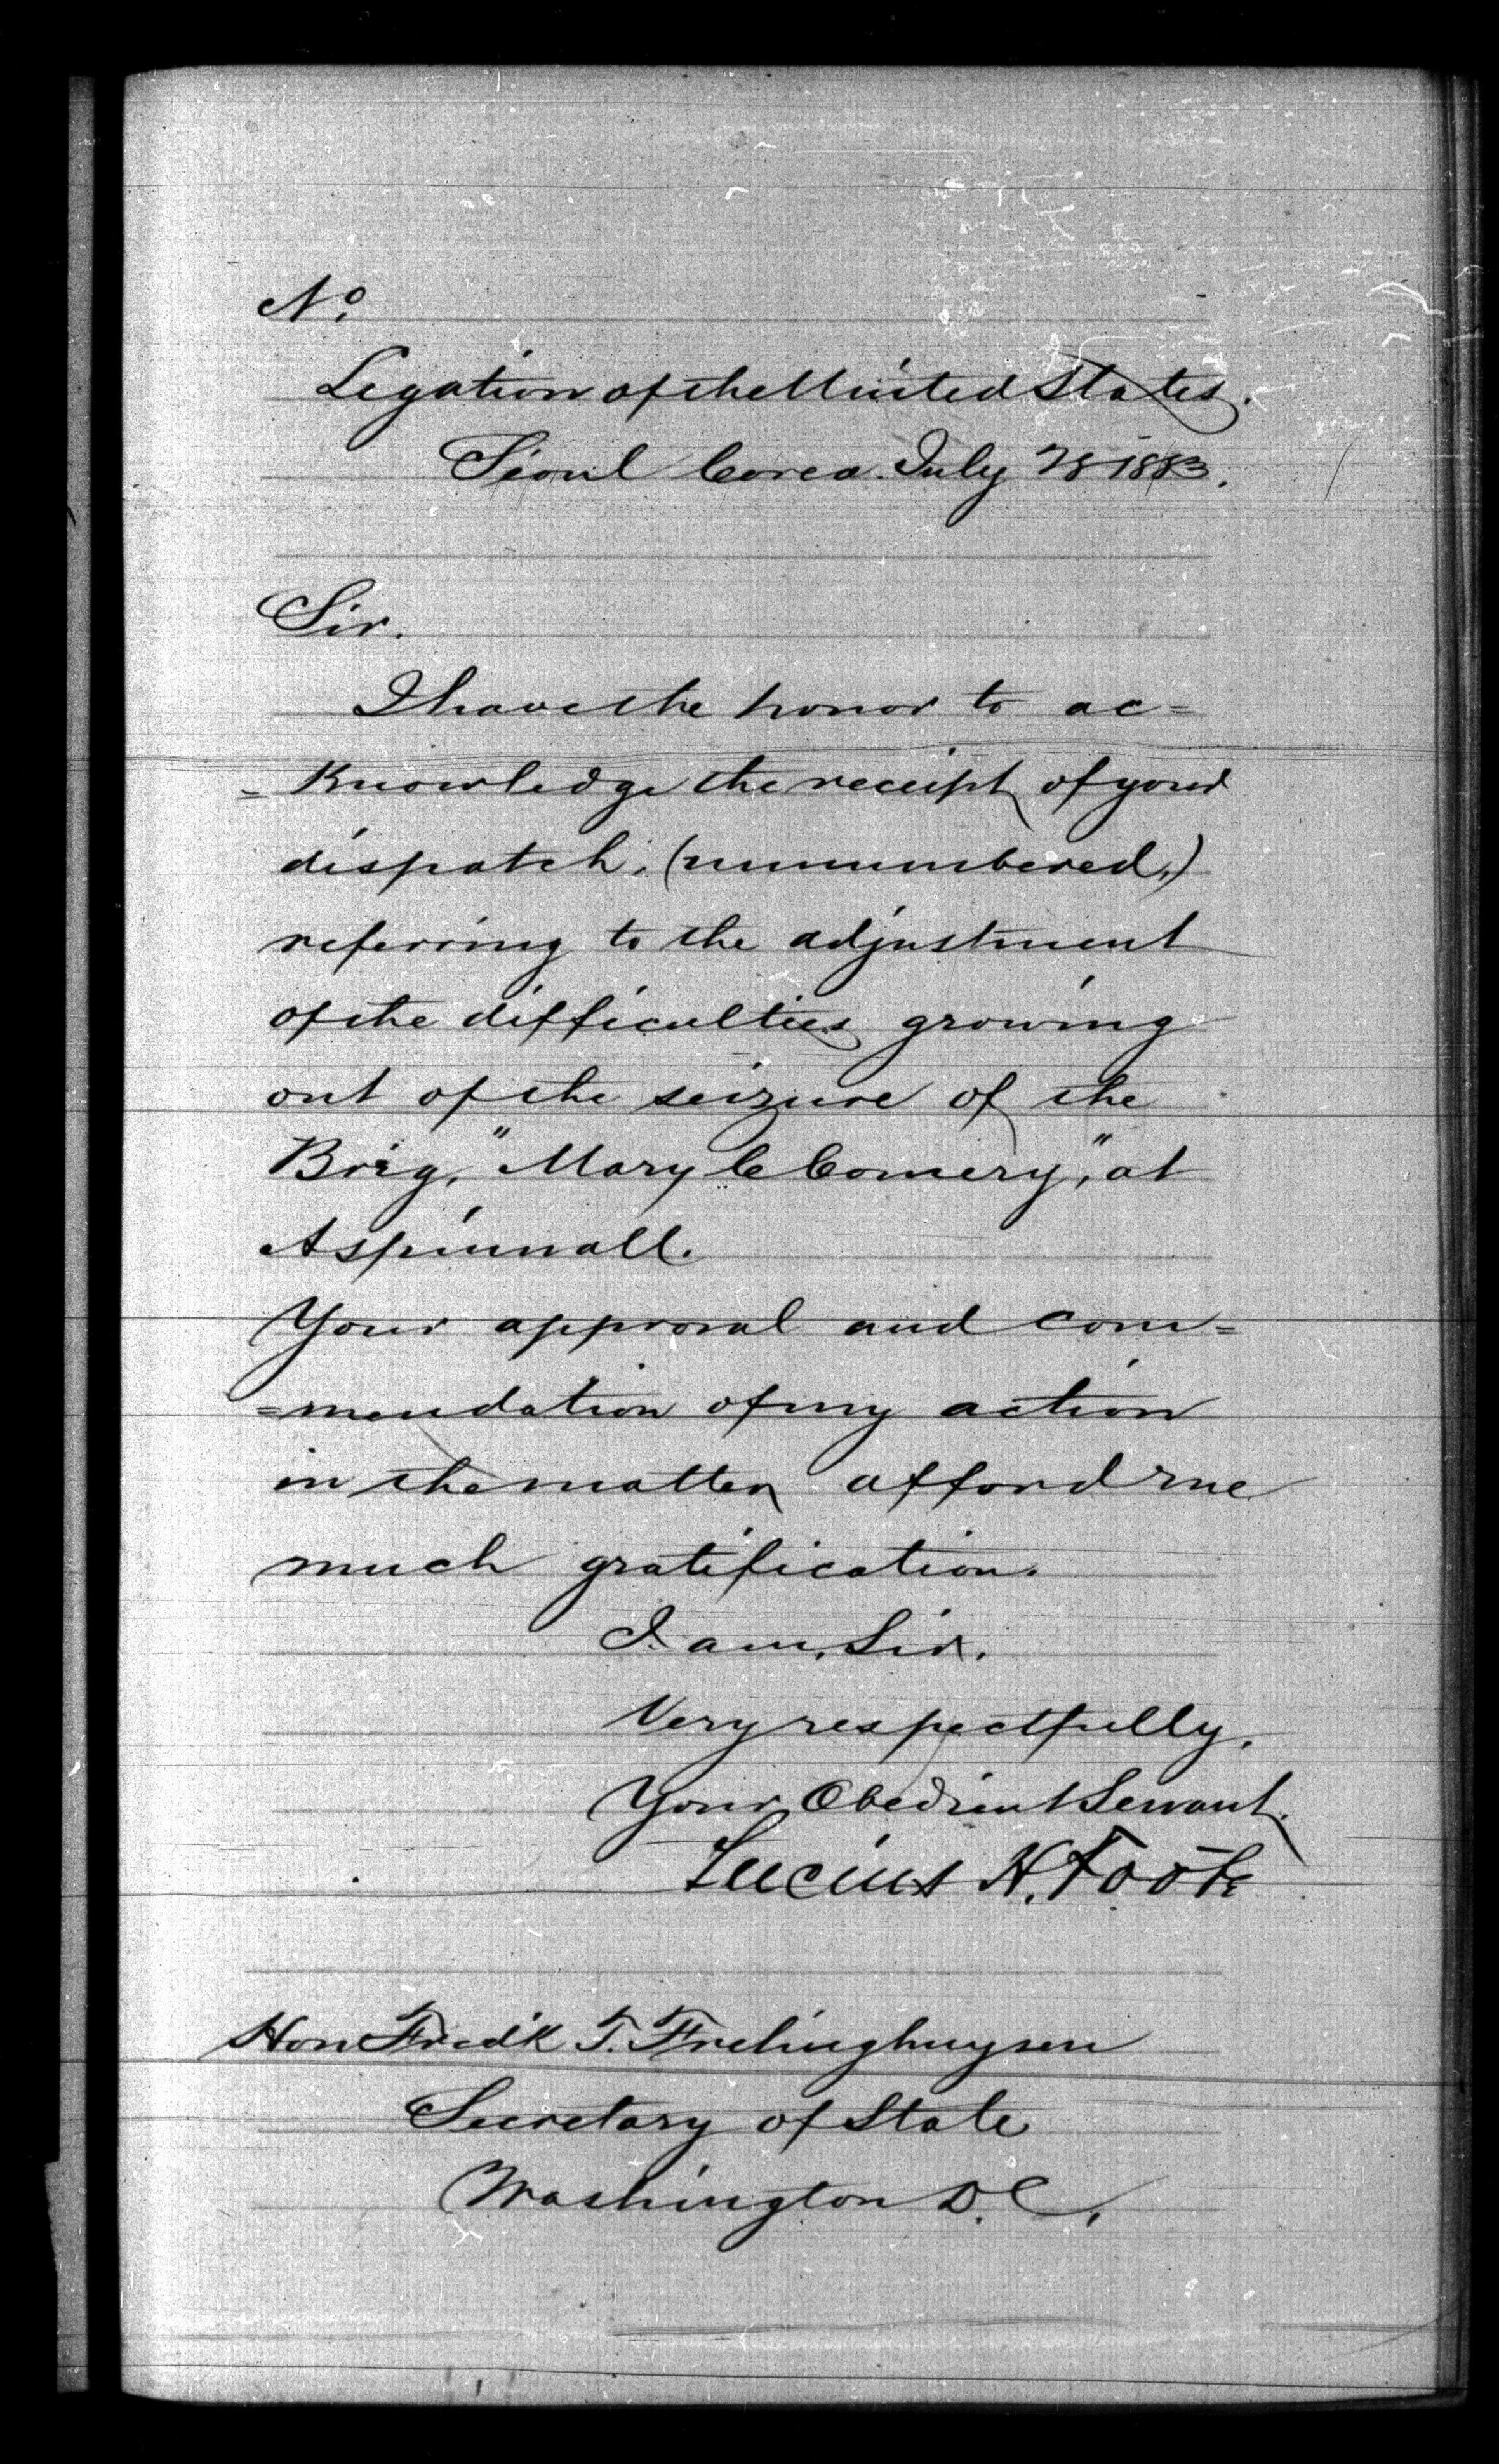 No.
Legation of the United States.
Séoul Corea. July 28 1883.
Sir.
I have the honor to ac=
=knowledge the receipt of your
dispatch, (unnumbered,)
referring to the adjustment
of the difficulties growing
out of the seizure of the
Brig, "Mary C Comery," at
Aspinnall.
Your approval and com=
=mendation of my action
in the matter afford me
much gratification.
I am, Sir.
Very respectfully,
Your Obedient Servant.
Lucius H. Foote
Hon Fredk T. Frelinghuysen
Secretary of State
Washington D.C,